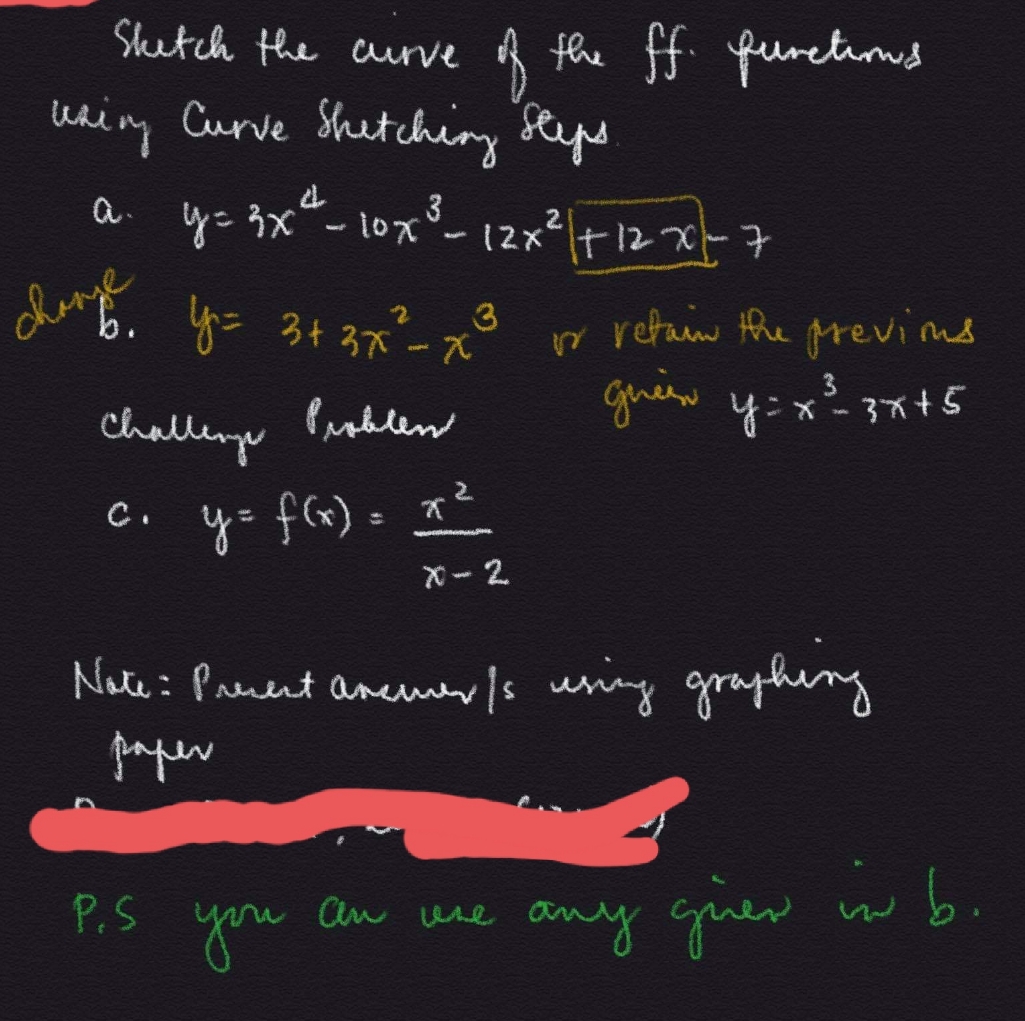 Sketch the curve of the ff. functions
using Curve Sketching Steps.
a. y = 3x⁴ - 10x³ - 12x² + 12x - 7
change b. y = 3 + 3x² - x³ or retain the previous
given y = x³ - 3x + 5
Challenge Problem
c. y = f(x) = x² / x - 2
Note: Present answer/s using graphing
paper
P.S you can use any given in b.